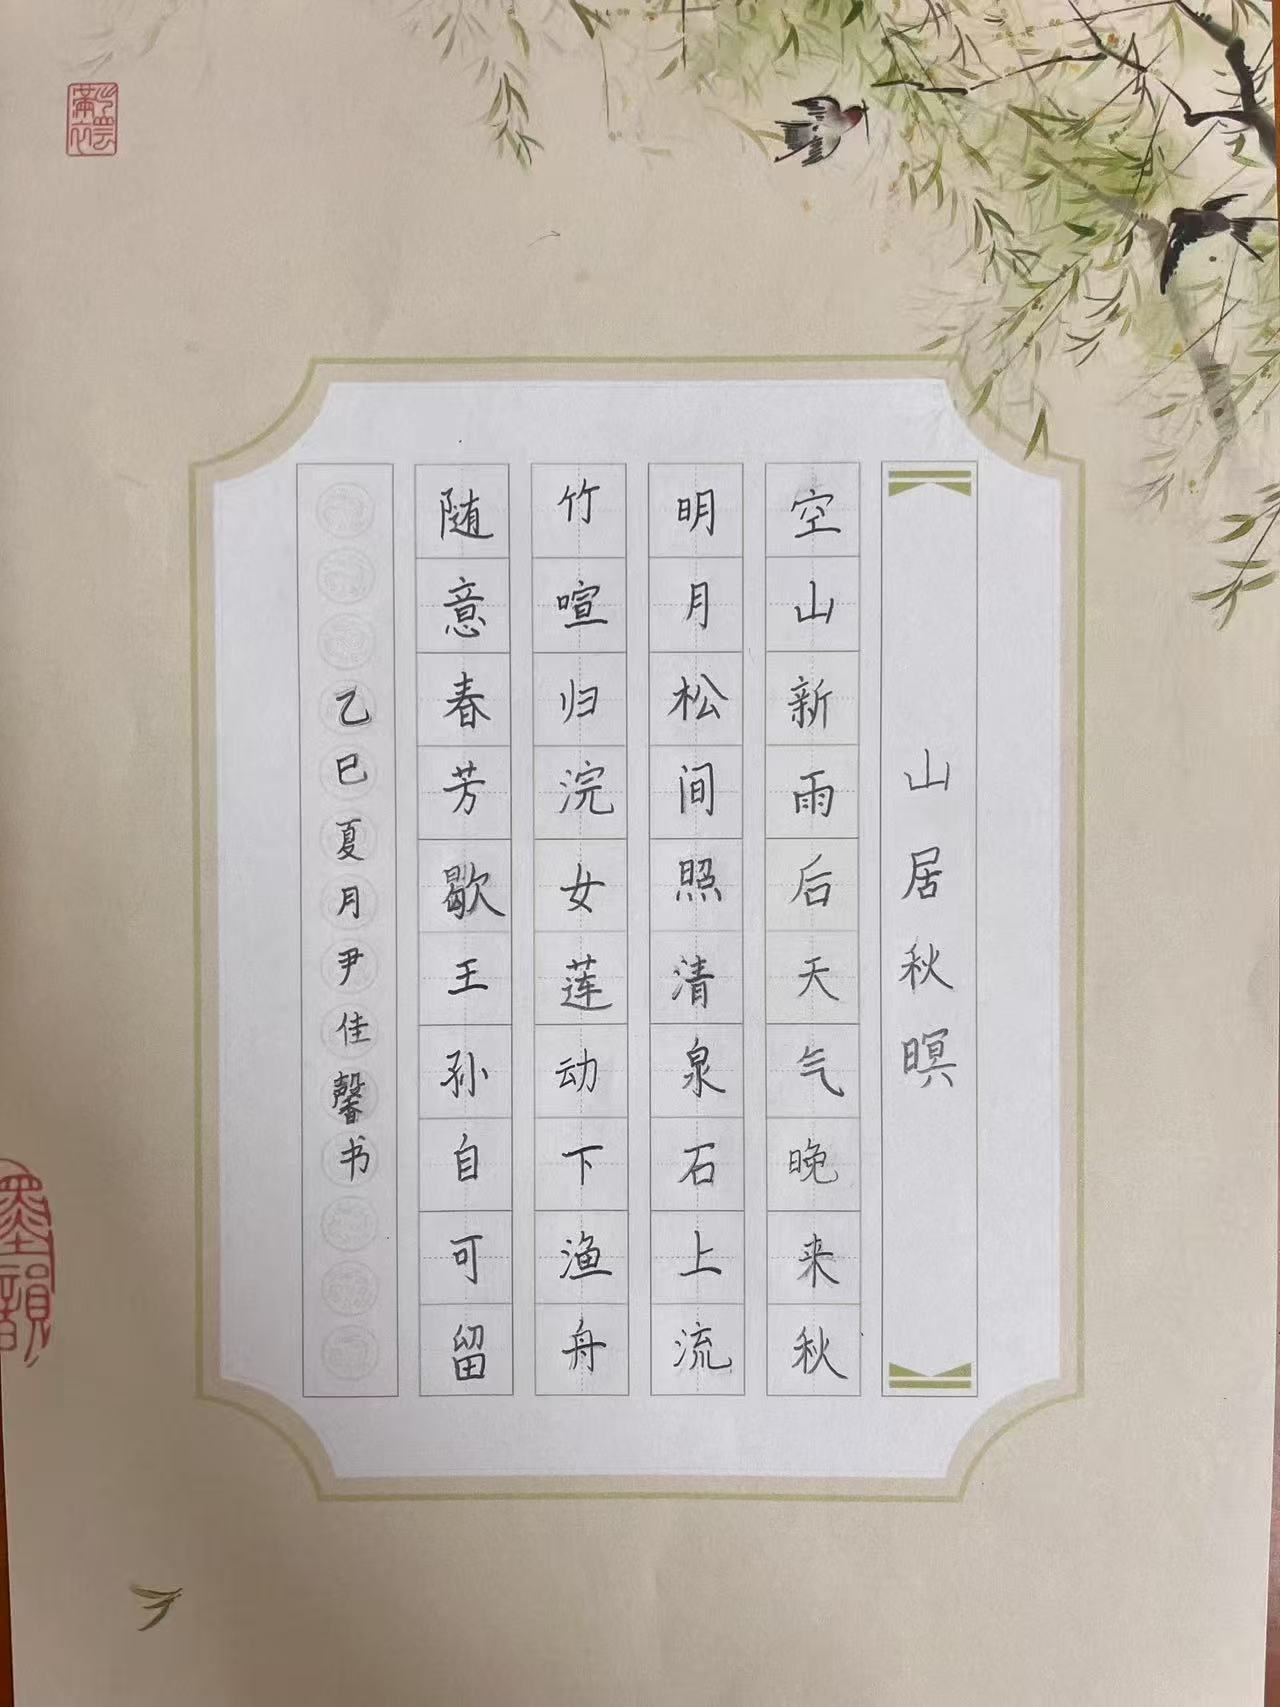 山居秋暝
空山新雨后天气晚来秋
明月松间照清泉石上流
竹喧归浣女莲动下渔舟
随意春芳歇王孙自可留
乙巳夏月尹佳馨书
墨韻